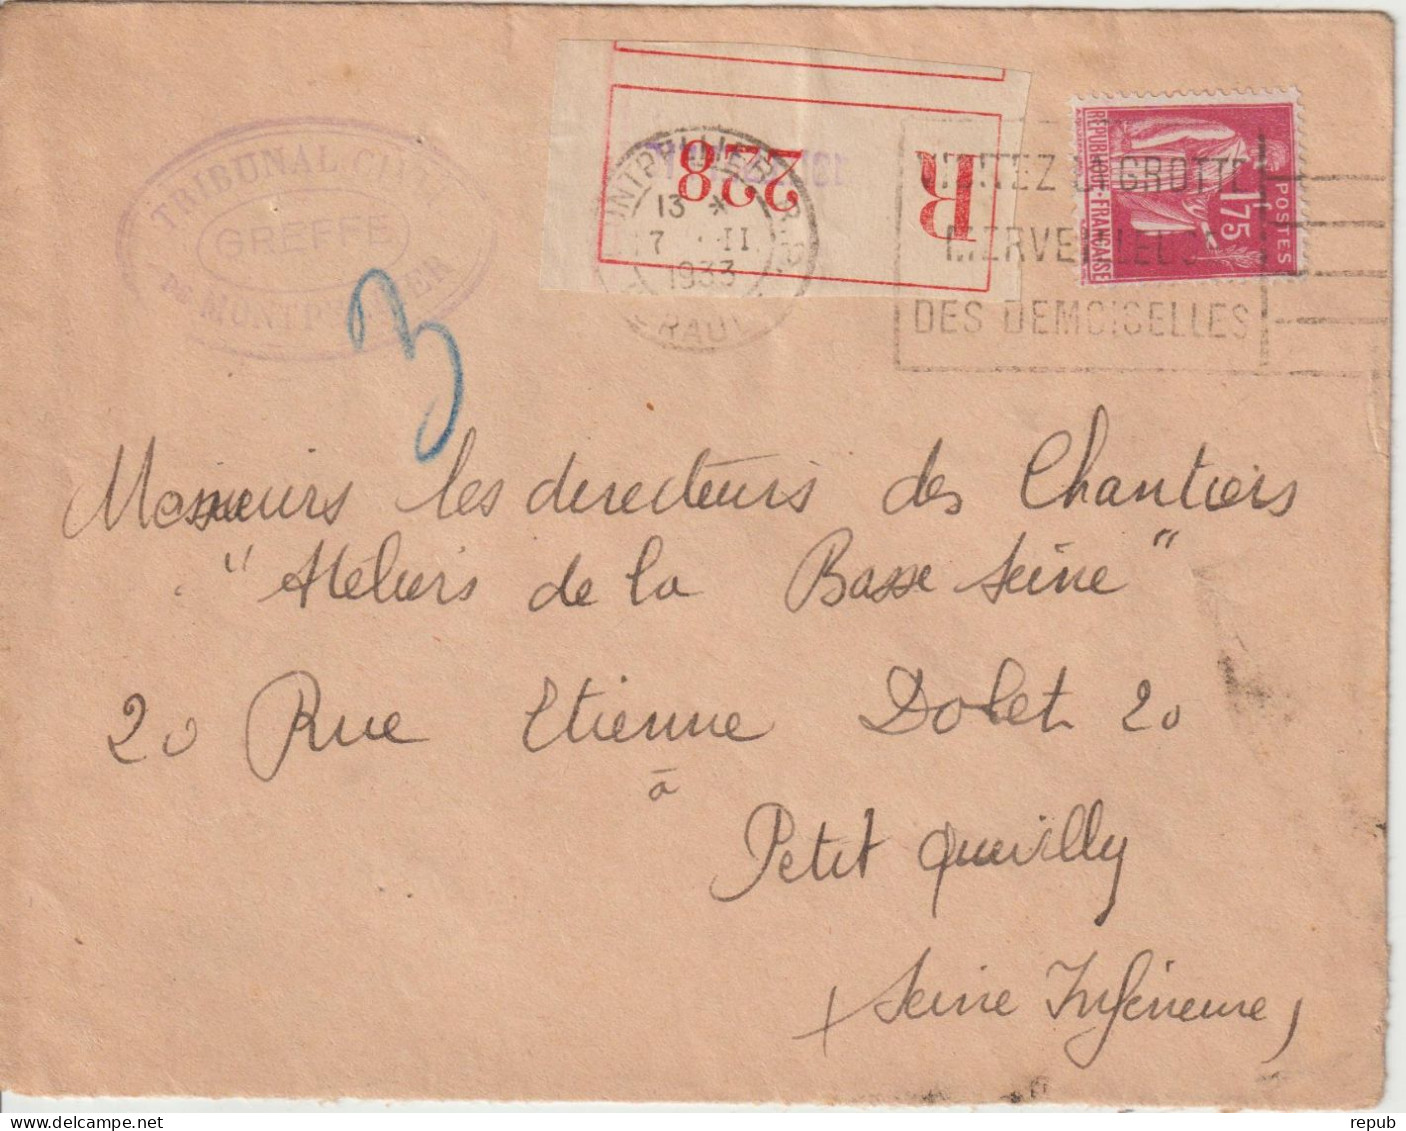 TRIBUNAL
GREFFE
DE MONTPELLIER
3
R 228
Montpellier
MONTPELLIER R.P.
13 *
7 · II
1933
HERAULT
VISITEZ LA GROTTE
MERVEILLEUSE
DES DEMOISELLES
REPUBLIQUE-FRANÇAISE
1F75
POSTES
Messieurs les directeurs des Chantiers
"Ateliers de la Basse Seine"
20 Rue Etienne Dolet 20
à
Petit Quevilly
(Seine Inférieure)
repub
©delcampe.net